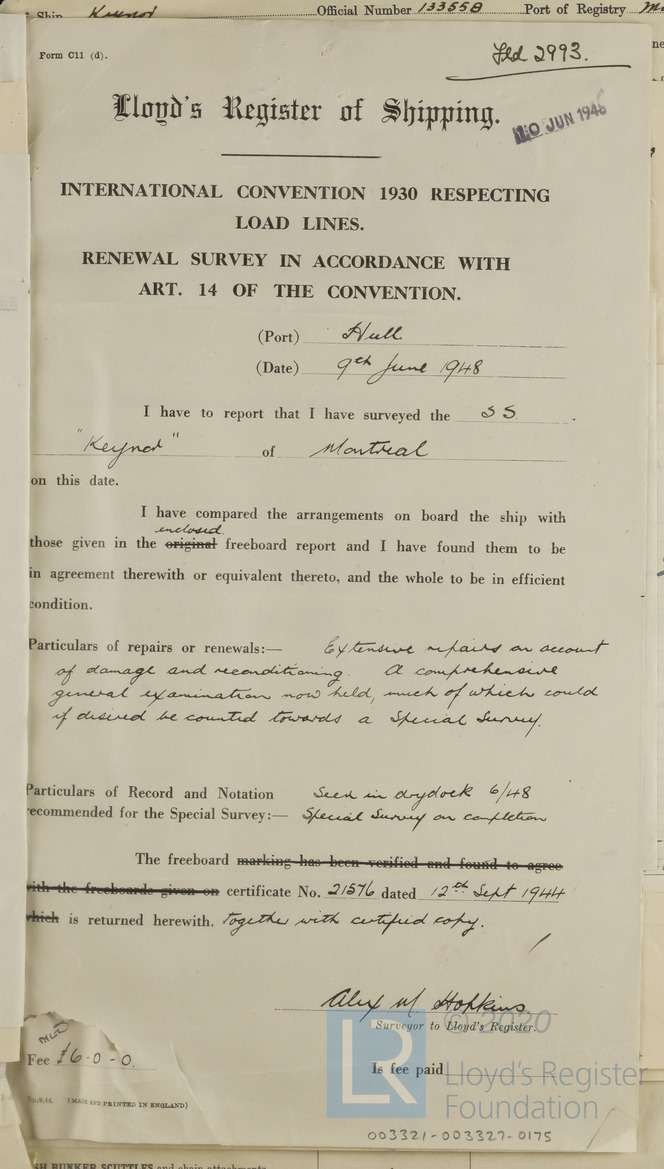 Ship Keynor Official Number 133558 Port of Registry
Form C11 (d).
Fld 2993.
Lloyd's Register of Shipping.
10 JUN 1948
INTERNATIONAL CONVENTION 1930 RESPECTING
LOAD LINES.
RENEWAL SURVEY IN ACCORDANCE WITH
ART. 14 OF THE CONVENTION.
(Port) Hull
(Date) 9th June 1948
I have to report that I have surveyed the SS.
"Keynor" of Montreal
on this date.
I have compared the arrangements on board the ship with
enclosed
those given in the original freeboard report and I have found them to be
in agreement therewith or equivalent thereto, and the whole to be in efficient
condition.
Particulars of repairs or renewals:— Extensive repairs on account
of damage and reconditioning. A comprehensive
general examination now held, much of which could
if desired be counted towards a Special Survey.
Particulars of Record and Notation Seen in drydock 6/48
recommended for the Special Survey:— Special Survey on completion
The freeboard marking has been verified and found to agree
with the freeboards given on certificate No. 21576 dated 12th Sept 1944
which is returned herewith. together with certified copy.
Alex M Hopkins
Surveyor to Lloyd's Register.
© 2020
Fee £6-0-0.
Is fee paid
LR Lloyd's Register
Foundation
(MADE AND PRINTED IN ENGLAND)
003321-003327-0175
SH BUNKER SCUTTLES and chain attachments